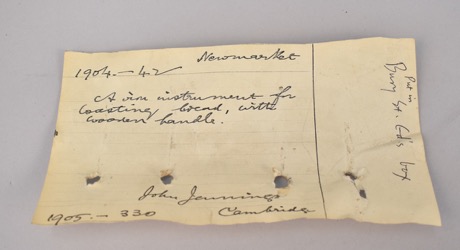 Newmarket
1904.—42
A iron instrument for
toasting bread, with
wooden handle.
John Jennings
1905.— 330 Cambridge
Put in
Bury St. Ed's box